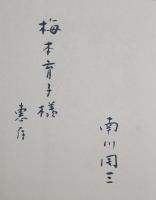 梅木育子様
恵存
南川周三